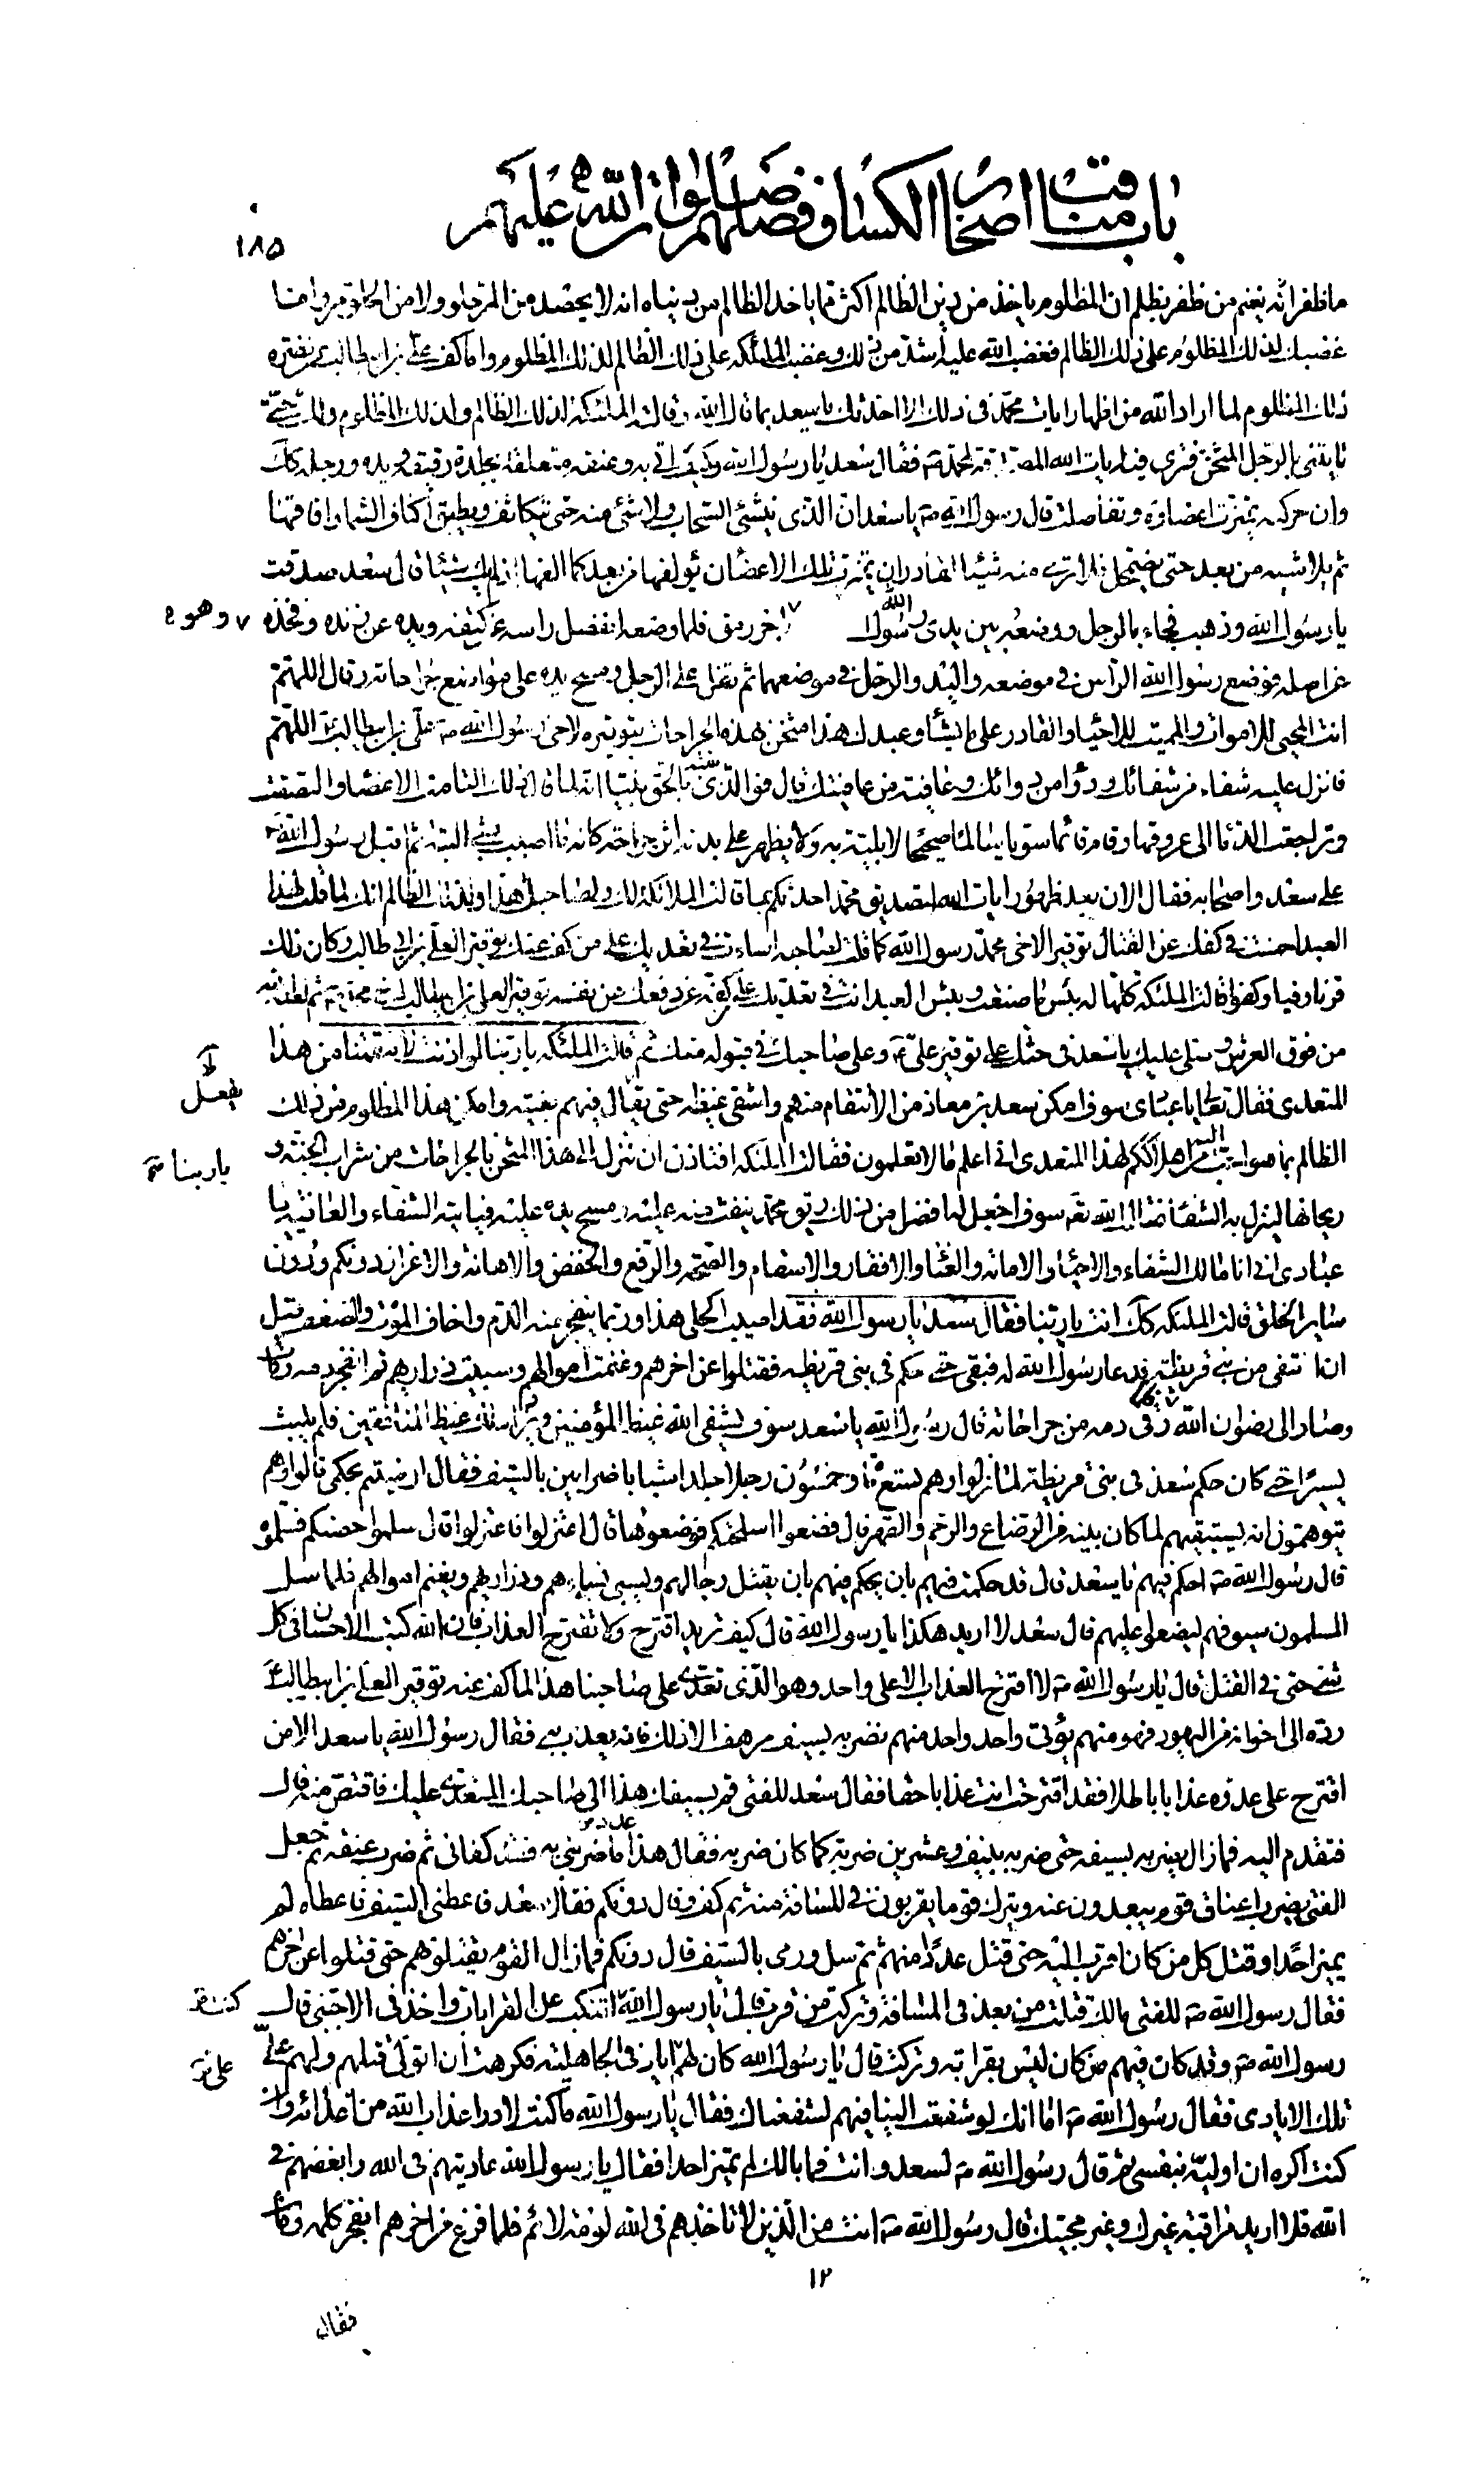 باب مناقب اصحاب الكساء وفضلهم صلوات الله عليهم
١٨٥
ما ظفر انّه يغنم من ظفر بظلم ان المظلوم ياخذ من دين الظالم اكثر مما ياخذ الظالم من دنياه انه لا يحصد من المر حلو ولا من الحلو مر واما
غضبك لذلك المظلوم على ذلك الظالم فغضب الله عليه اشد من ذلك وغضب الملئكة على ذلك الظالم لذلك المظلوم واما كف علي بن ابيطالب عن نصرة
ذلك المظلوم لما اراد الله من اظهار ايات محمّد في ذلك لا احدثك يا سعد بما قال الله وقالت الملئكة لذلك الظالم ولذلك المظلوم ولك حتّى
تاتيني بالرجل المثخن فترى فيه ايات الله المصدقة لمحمد ص فقال سعد يا رسول الله وكيف اتي به وعنقه متعلقة بجلدة رقيقة ويده ورجله كك
وان حركته تميزت اعضاؤه وتفاصلت قال رسول الله ص يا سعد ان الذي ينشئ السحاب ولا شئ منه حتى يتكاثف ويطبق اكناف السماء وافاقها
ثم يلاشيه من بعد حتى يضمحل فلا ترى منه شيئا لقادر ان تميزت تلك الاعضاء ان يؤلفها من بعد كما الفها اذ لم يك شيئا قال سعد صدقت
يا رسول الله وذهب فجاء بالرجل ووضعه بين يدي رسول الله باخر رمق فلما وضعه انفصل راسه عن كتفه ويده عن زنده وفخذه
وهو
عن اصله فوضع رسول الله الراس في موضعه واليد والرجل في موضعهما ثم تفل على الرجل ومسح يده على مواضع جراحاته وقال اللهم
انت المحيي للاموات والمميت للاحياء والقادر على ما يشاء وعبدك هذا مثخن بهذه الجراحات بتوقيره لاخي رسول الله ص علي بن ابيطالب ع اللهم
فانزل عليه شفاء من شفائك ودواء من دوائك وعافية من عافيتك قال فو الذي بعثه بالحق نبيا انه لما قال ذلك التامت الاعضاء والتصقت
وتراجعت الدماء الى عروقها وقام قائما سويا سالما صحيحا لا بلية به ولا يظهر على بدنه اثر جراحة كانه ما اصيب بشئ البتة ثم اقبل رسول الله ص
على سعد واصحابه فقال الان بعد ظهور ايات الله لتصديق محمد احدثكم بما قالت الملائكة لك ولصاحبك هذا ولذلك الظالم انك لما قلت لهذا
العبد احسنت في كفك عن القتال توقيرا لاخي محمد رسول الله كما قلت لصاحبه اسات في تعديك على من كف عنك توقيرا لعلي بن ابي طالب وكان ذلك
قرنا وفيا وكفوا قالت الملئكة كلها له بئس ما صنعت وبئس العبد انت في تعديك على من كف عن دفعك عن نفسه توقيرا لعلي بن ابيطالب اخي محمد ص ثم لعنه الله
من فوق العرش وصلى عليك يا سعد في حثك على توقير علي ع وعلى صاحبك في قبوله منك ثم قالت الملئكة يا ربنا لو اذنت لانتقمنا من هذا
لا
يفعل
المتعدي فقال تعالى يا عبادي سوف امكن سعد بن معاذ من الانتقام منهم واشفي غيظه حتى ينال فيهم بغيته وامكن هذا المظلوم من ذلك
الظالم بما هو احب اليه من اهلاككم لهذا المتعدي اني اعلم ما لا تعلمون فقالت الملئكة افتاذن ان ننزل الى هذا المثخن بالجراحات من شراب الجنة و
يا ربنا
ريحانها لينزل به الشفاء فقال الله تع سوف اجعل له افضل من ذلك ريق محمد ينفث منه عليه ومسح يده عليه فياتيه الشفاء والعافية يا
عبادي اني انا مالك الشفاء والاحياء والاماتة والغناء والافقار والاسقام والصحة والرفع والخفض والاهانة والاعزاز دونكم ودون
ساير الخلق قالت الملئكة كك انت يا ربنا فقال سعد يا رسول الله فقد اصيب اكحلي هذا وربما ينفجر عنه الدم واخاف الموت والضعف قبل
ان اشتفي من بني قريظة فدعا رسول الله له فبقي حتى حكم في بني قريظة فقتلوا عن اخرهم وغنمت اموالهم وسبيت ذراريهم ثم انفجر دمه ومات
وصار الى رضوان الله رقى دمه من جراحاته قال رسول الله يا سعد سوف يشفي الله غيظ المؤمنين ويزداد لك غيظ المنافقين فلم يلبث
يسيرا حتى كان حكم سعد في بني قريظة لما نزلوا وهم تسعمائة وخمسون رجلا جلدا شبابا ضرابين بالسيف فقال ارضيتم بحكمي قالوا وهم
يتوهمون انه يستبقيهم لما كان بينه من الرضاع والرحم والصهر قال فضعوا اسلحتكم فوضعوها قال اعتزلوا فاعتزلوا قال سلموا حصنكم فسلموه
قال رسول الله ص احكم فيهم يا سعد قال قد حكمت فيهم بان يحكم فيهم بان يقتل رجالهم ويسبي نساءهم وذراريهم ويغنم اموالهم فلما سل
المسلمون سيوفهم ليضعوا عليهم قال سعد لا اريد هكذا يا رسول الله قال كيف تريد اقترح ولا تقترح العذاب فان الله كتب الاحسان في كل
شئ حتى في القتل قال يا رسول الله ص لا اقترح العذاب الا على واحد وهو الذي تعدى على صاحبنا هذا لما كف عنه توقيرا لعلي بن ابيطالب ع
ردّه الى اخوانه من اليهود فهو منهم يؤتى واحد واحد منهم نضربه بسيف مرهف الا ذلك فانه يعذب به فقال رسول الله يا سعد الا من
اقترح على عدوه عذابا باطلا فقد اقترحت انت عذابا حقا فقال سعد للفتى قم بسيفك هذا الى صاحبك المتعدي عليك فاقتص منه قال
فتقدم اليه فما زال يضربه بسيفه حتى ضربه بنيف وعشرين ضربة كما كان ضربه فقال هذا عدد ما ضربني به فقد كفاني ثم ضرب عنقه ثم جعل
الفتى يضرب اعناق قوم يبعدون عنه ويترك قوما يقربون في المسافة منه ثم كف وقال دونكم فقال سعد فاعطني السيف فاعطاه لم
يميز احدا وقتل كل من كان اقرب اليه حتى قتل عددا منهم ثم سل ورمى بالسيف قال دونكم فما زال القوم يقتلونهم حتى قتلوا عن اخرهم
فقال رسول الله ص للفتى مالك قتلت من بعد في المسافة وتركت من قرب قال يا رسول الله اتنكب عن القرابات واخذ في الاجنبي قال
كنت
رسول الله ص وقد كان فيهم من كان ليس بقرابة وتركت قال يا رسول الله كان لهم اياد في الجاهلية فكرهت ان اتولى قتلهم ولهم علي
على
تلك الايادي فقال رسول الله ص اما انك لو شفعت الينا فيهم لشفعناك فقال يا رسول الله ما كنت لادرا عذاب الله من اعدائه وان
كنت اكره ان اوليه بنفسي ثم قال رسول الله ص لسعد وانت فما بالك لم تميز احدا فقال يا رسول الله عاديتهم في الله وابغضهم في
الله فلا اريد مراقبة غيرك وغير محبيك قال رسول الله ص انت من الذين لا تاخذهم في الله لومة لائم فلما فرغ من اخرهم انفجر كلمه ومات
١٢
فقال